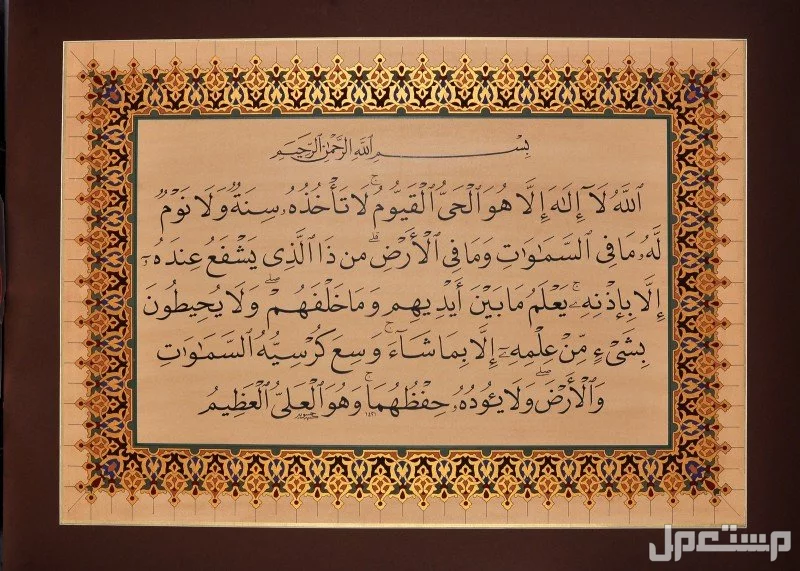 بِسْمِ ٱللَّهِ ٱلرَّحْمَٰنِ ٱلرَّحِيمِ
ٱللَّهُ لَآ إِلَٰهَ إِلَّا هُوَ ٱلْحَىُّ ٱلْقَيُّومُ ۚ لَا تَأْخُذُهُۥ سِنَةٌ وَلَا نَوْمٌ
لَّهُۥ مَا فِى ٱلسَّمَٰوَٰتِ وَمَا فِى ٱلْأَرْضِ ۗ مَن ذَا ٱلَّذِى يَشْفَعُ عِندَهُۥٓ
إِلَّا بِإِذْنِهِۦ ۚ يَعْلَمُ مَا بَيْنَ أَيْدِيهِمْ وَمَا خَلْفَهُمْ ۖ وَلَا يُحِيطُونَ
بِشَىْءٍ مِّنْ عِلْمِهِۦٓ إِلَّا بِمَا شَآءَ ۚ وَسِعَ كُرْسِيُّهُ ٱلسَّمَٰوَٰتِ
وَٱلْأَرْضَ ۖ وَلَا يَـُٔودُهُۥ حِفْظُهُمَا ۚ وَهُوَ ٱلْعَلِىُّ ٱلْعَظِيمُ
مستعمل